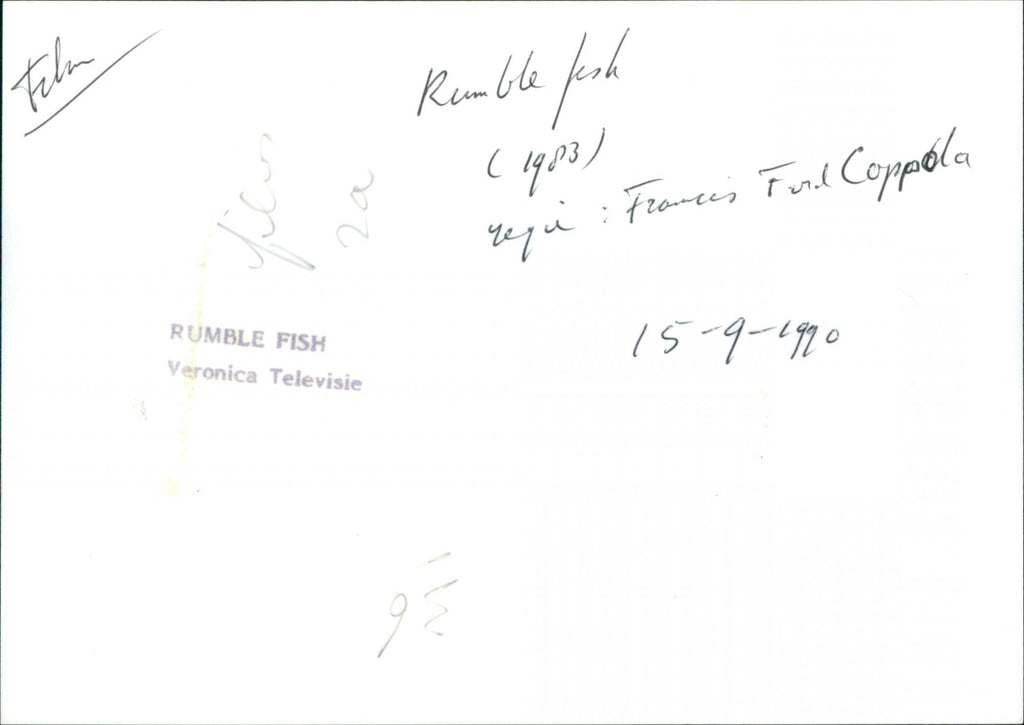 Film
Rumble fish
(1983)
regie : Francis Ford Coppola
film
za
RUMBLE FISH
Veronica Televisie
15-9-1990
9